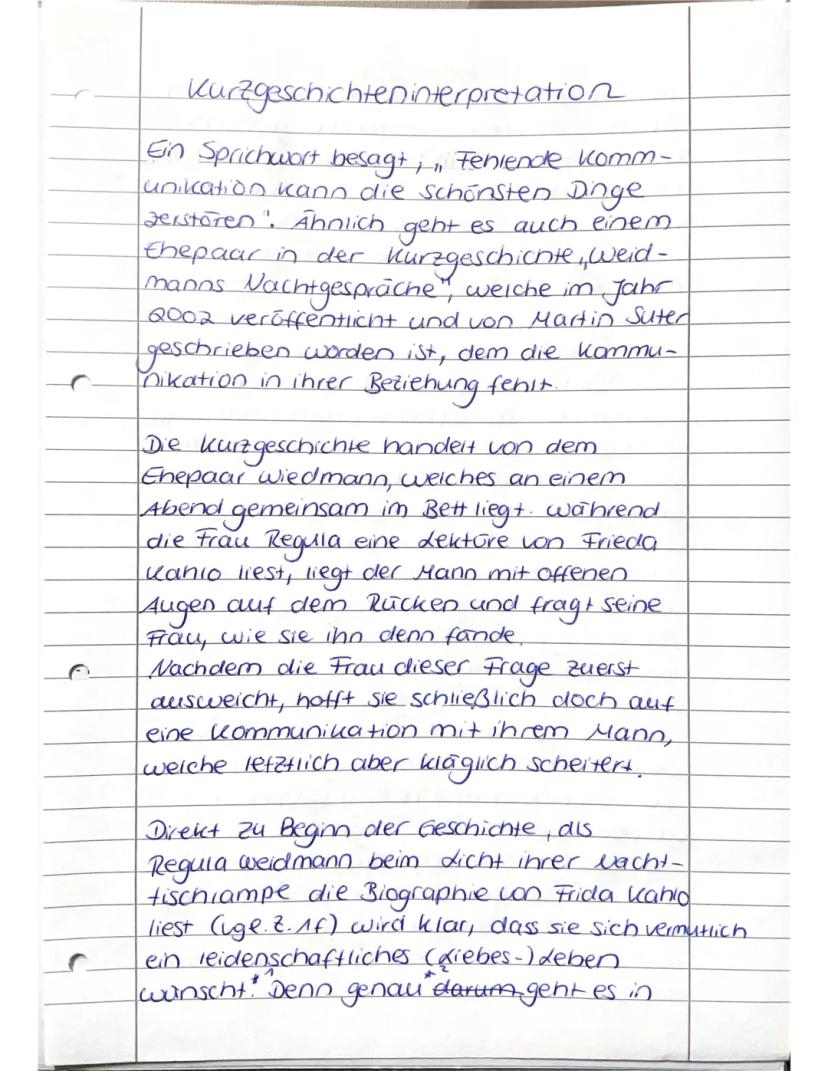 Kurzgeschichteninterpretation
Ein Sprichwort besagt, „Fehlende Komm-
unikation kann die schönsten Dinge
zerstören". Ähnlich geht es auch einem
Ehepaar in der Kurzgeschichte „Weid-
manns Nachtgespräche", welche im Jahr
2002 veröffentlicht und von Martin Suter
geschrieben worden ist, dem die Kommu-
nikation in ihrer Beziehung fehlt.
Die Kurzgeschichte handelt von dem
Ehepaar Wiedmann, welches an einem
Abend gemeinsam im Bett liegt. Während
die Frau Regula eine Lektüre von Frieda
Kahlo liest, liegt der Mann mit offenen
Augen auf dem Rücken und fragt seine
Frau, wie sie ihn denn fände.
Nachdem die Frau dieser Frage zuerst
ausweicht, hofft sie schließlich doch auf
eine Kommunikation mit ihrem Mann,
welche letztlich aber kläglich scheitert.
Direkt zu Beginn der Geschichte, als
Regula Weidmann beim Licht ihrer Nacht-
tischlampe die Biographie von Frida Kahlo
liest (vgl. Z. 1f) wird klar, dass sie sich vermutlich
ein leidenschaftliches (Liebes-) Leben
wünscht.*1 Denn genau *2 darum geht es in